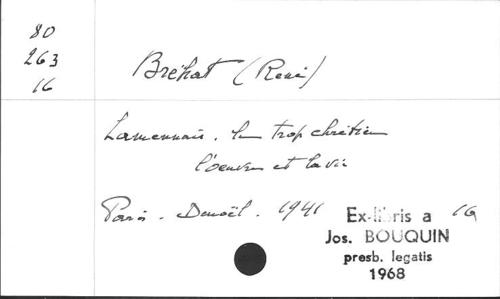 80
263
16
Bréhat (René)
Lamennais. le trop chrétien
l'oeuvre et la vie
Paris. Denoël. 1941
16
Ex-libris a
Jos. BOUQUIN
presb. legatis
1968